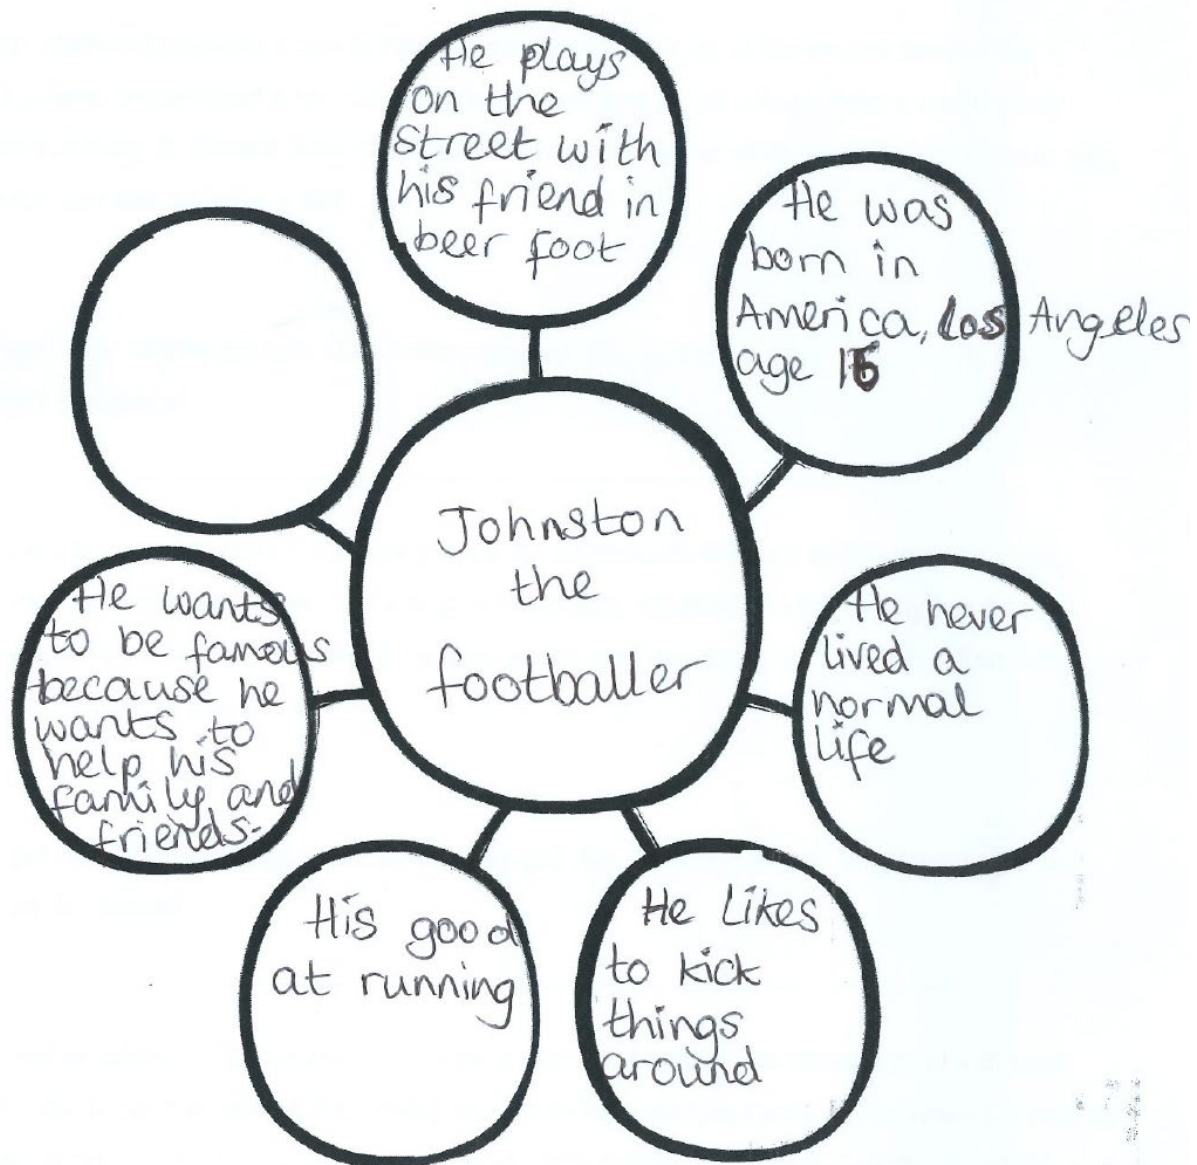 He plays
on the
street with
his friend in
beer foot
He was
born in
America, Los Angeles
age 16
Johnston
the
footballer
He never
lived a
normal
life
He Likes
to kick
things
around
His good
at running
He wants
to be famous
because he
wants to
help his
family and
friends.